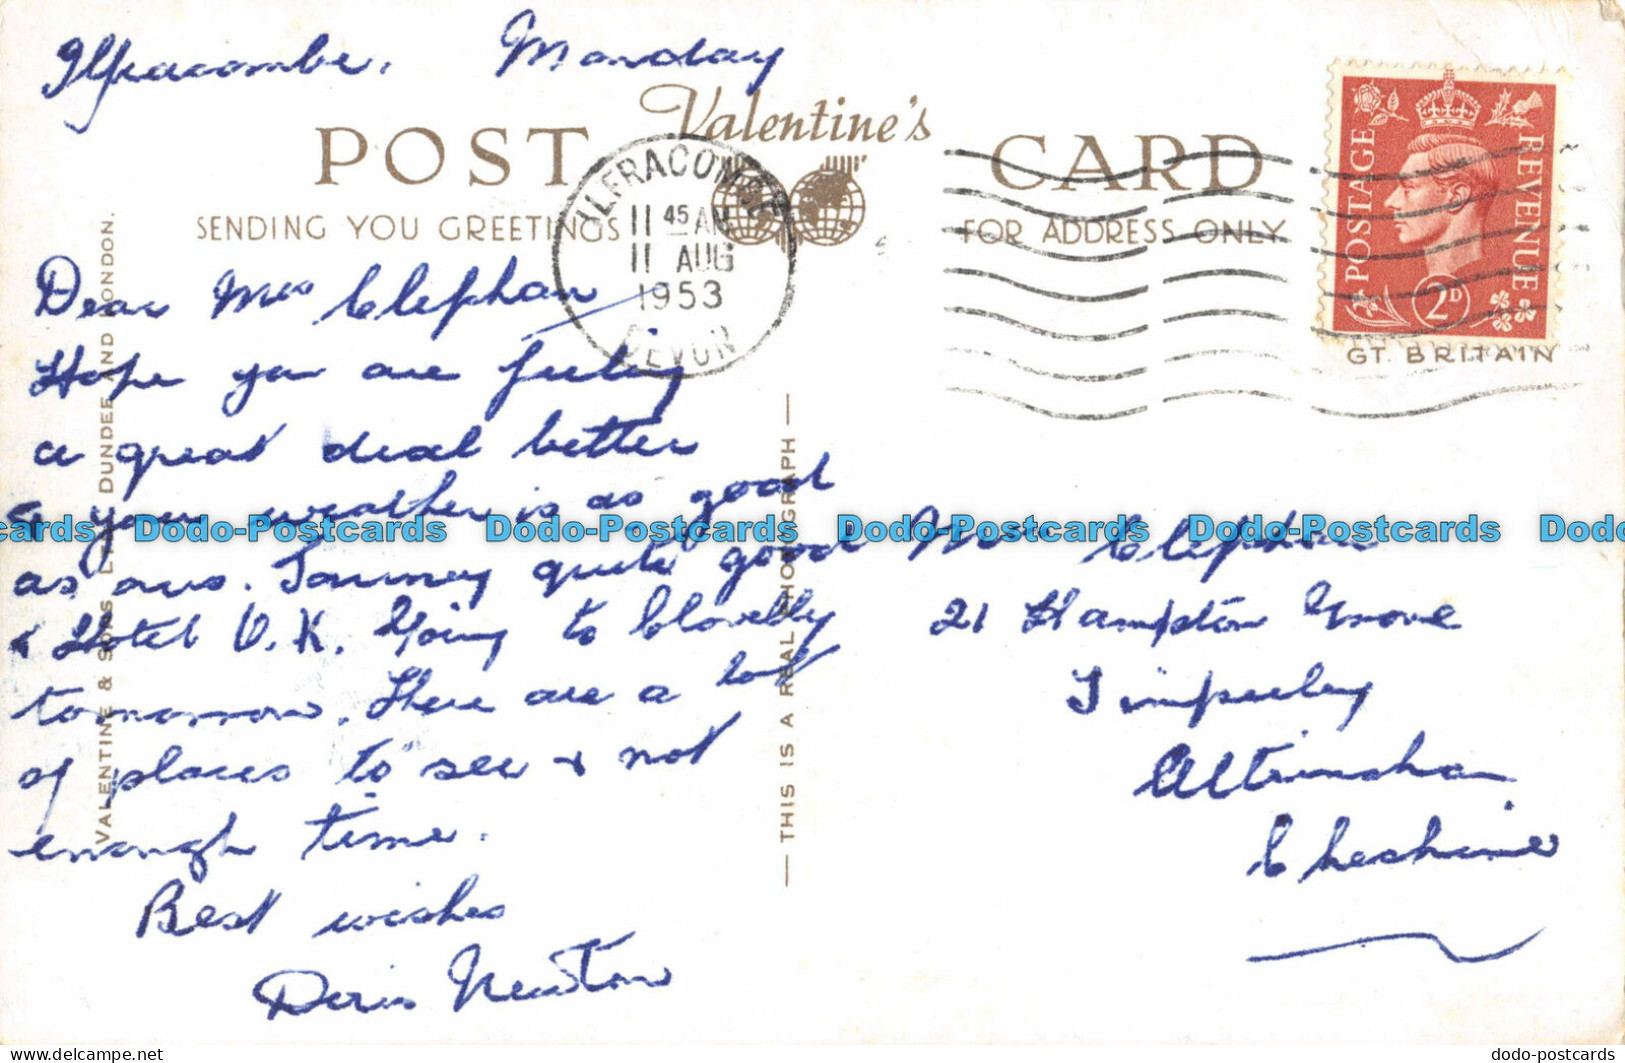 Ilfracombe. Monday
Valentine's
POST CARD
SENDING YOU GREETINGS
FOR ADDRESS ONLY
ILFRACOMBE
11 45 AM
11 AUG
1953
DEVON
POSTAGE REVENUE
2D
GT. BRITAIN
Dear Mrs Clephan
Hope you are feeling
a great deal better
& your weather is as good
as ours. Journey quite good
& Hotel O.K. Going to Clovelly
tomorrow. There are a lot
of places to see & not
enough time.
Best wishes
Doris Newton
Mrs Clephan
21 Hampton Grove
Timperley
Altrincham
Cheshire
VALENTINE & SONS, LTD., DUNDEE AND LONDON.
— THIS IS A REAL PHOTOGRAPH —
Dodo-Postcards Dodo-Postcards Dodo-Postcards Dodo-Postcards Dodo-Postcards
www.delcampe.net
dodo-postcards